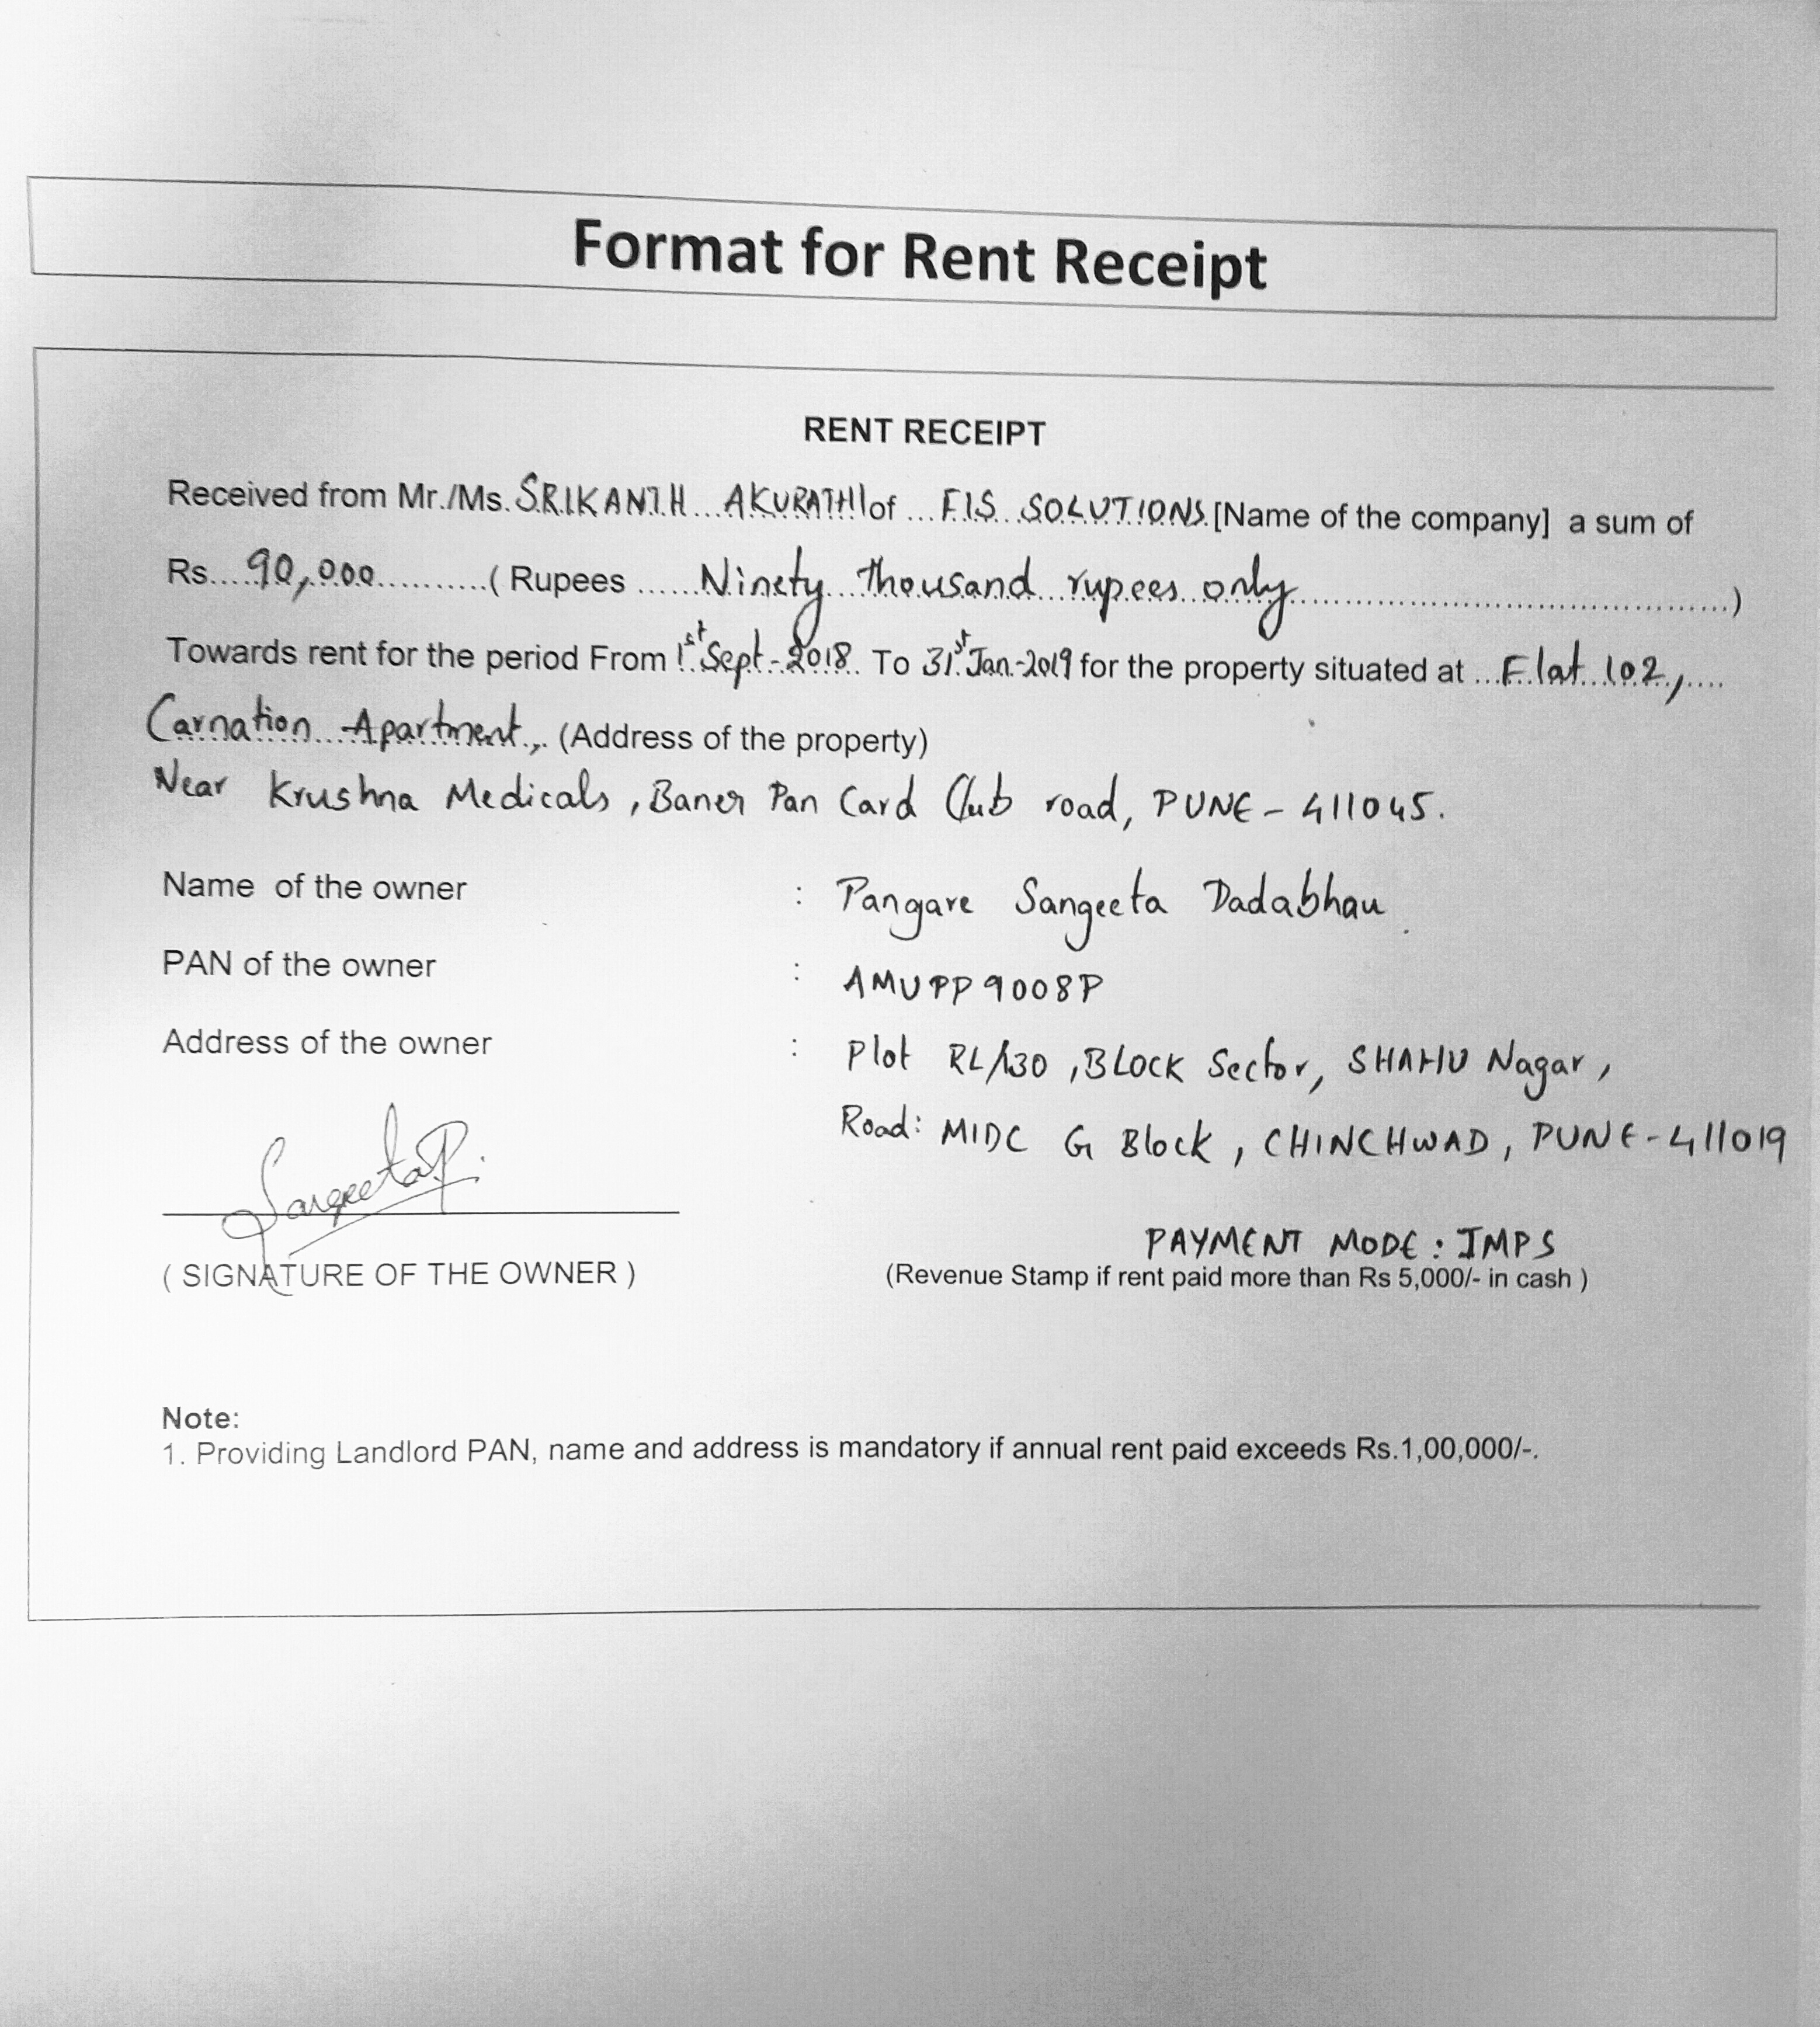 Format for Rent Receipt
RENT RECEIPT
Received from Mr./Ms. SRIKANTH AKURATHI of FIS SOLUTIONS [Name of the company] a sum of
Rs. 90,000 ( Rupees Ninety thousand rupees only )
Towards rent for the period From 1st Sept-2018 To 31st Jan-2019 for the property situated at Flat 102,
Carnation Apartment, (Address of the property)
Near Krushna Medicals, Baner Pan Card Club road, PUNE - 411045.
Name of the owner : Pangare Sangeeta Dadabhau
PAN of the owner : AMUPP9008P
Address of the owner : Plot RL/130, BLOCK Sector, SHAHU Nagar,
Road: MIDC G Block, CHINCHWAD, PUNE-411019
Sangeeta P.
PAYMENT MODE: IMPS
( SIGNATURE OF THE OWNER ) (Revenue Stamp if rent paid more than Rs 5,000/- in cash )
Note:
1. Providing Landlord PAN, name and address is mandatory if annual rent paid exceeds Rs.1,00,000/-.